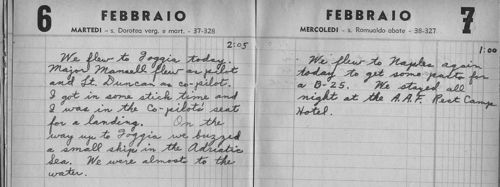 6 FEBBRAIO
MARTEDI - s. Dorotea verg. e mart. - 37-328
2:05
We flew to Foggia today.
Major Mansell flew as pilot
and Lt. Duncan as co-pilot.
I got in some stick time and
I was in the Co-pilots' seat
for a landing. On the
way up to Foggia we buzzed
a small ship in the Adriatic
Sea. We were almost to the
water.
FEBBRAIO 7
MERCOLEDI - s. Romualdo abate - 38-327
1:00
We flew to Naples again
today to get some parts for
a B-25. We stayed all
night at the A.A.F. Rest Camp
Hotel.